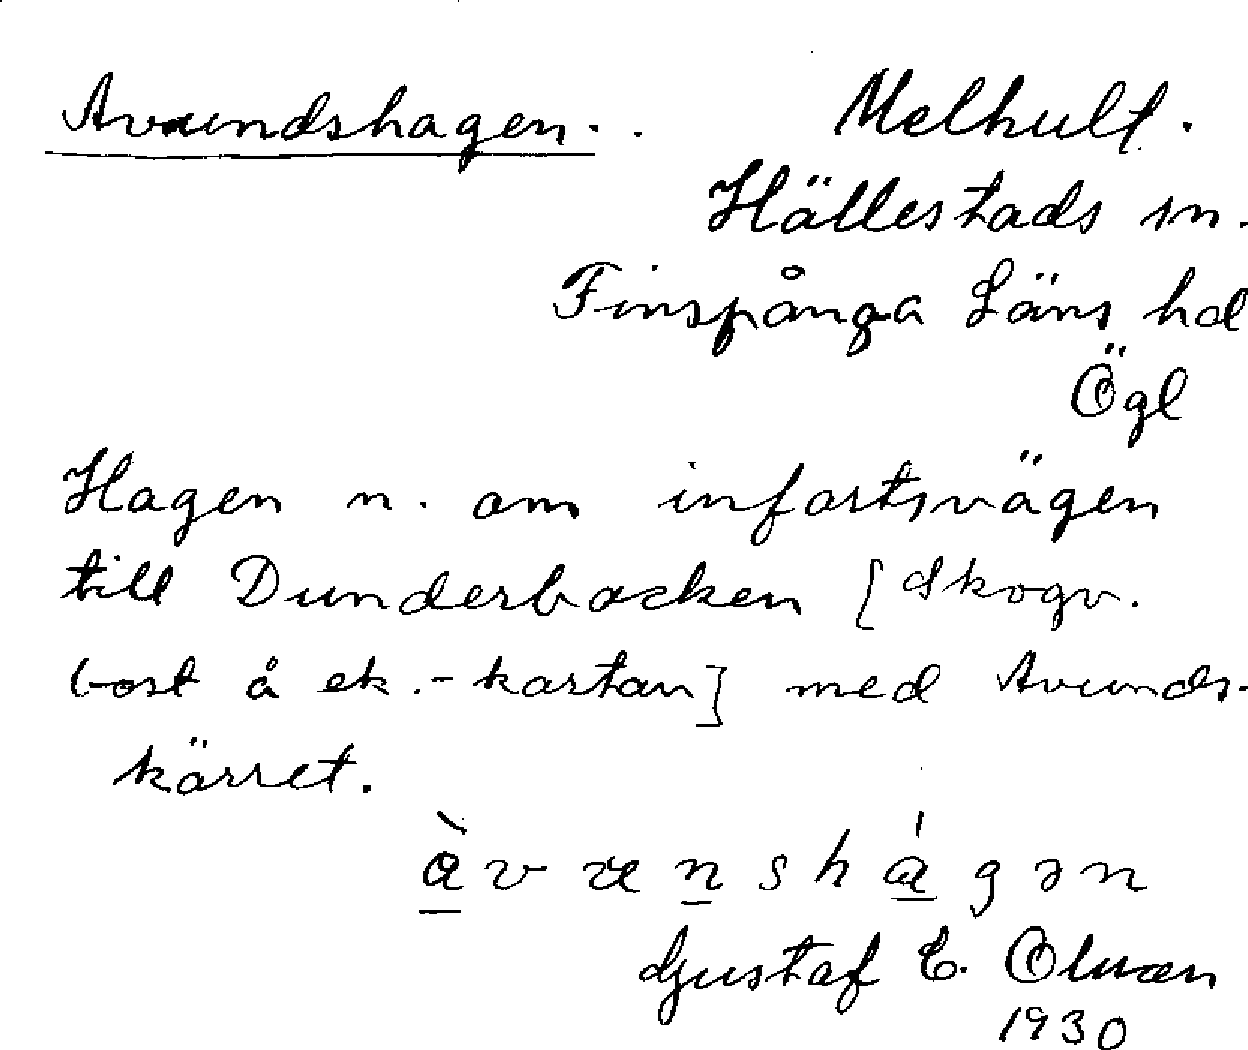 Avundshagen. . Melhult.
Hällestads sn.
Finspånga Läns hd
Ögl
Hagen n. om infartsvägen
till Dunderbacken [Skogv.
bost å ek.-kartan] med Avunds-
kärret.
Gustaf E. Olsson
1930